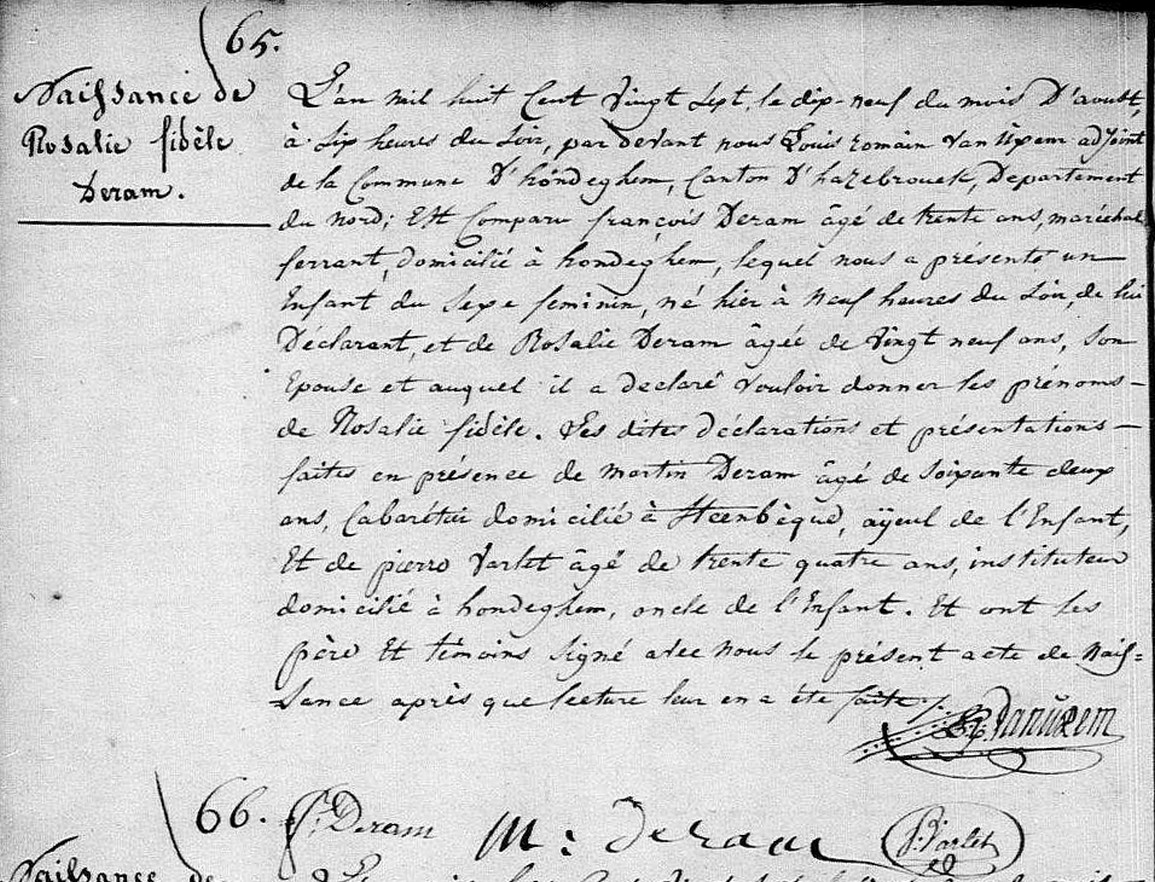 65.
Naissance de
Rosalie fidèle
Deram.
L'an mil huit Cent Vingt Sept, le dix-neuf du mois D'aoust,
à Six heures du Soir, par devant nous Louis romain Vanuxem adjoint
de la Commune D'hondeghem, Canton D'hazebrouck, Departement
du nord; Est Comparu françois Deram âgé de trente ans, maréchal
ferrant, domicilié à hondeghem, lequel nous a présenté un
Enfant du Sexe feminin, né hier à neuf heures du Soir, de lui
Déclarant, et de Rosalie Deram âgée de Vingt neuf ans, Son
Epouse et auquel il a declaré Vouloir donner les prénoms-
de Rosalie fidèle. Les dites déclarations et présentations-
faites en présence de martin Deram âgé de Soixante deux
ans, Cabarétier domicilié à Steenbèque, aÿeul de l'Enfant,
Et de pierre Varlet âgé de trente quatre ans, instituteur
domicilié à hondeghem, oncle de l'Enfant. Et ont les
père Et témoins Signé avec nous le présent acte de Naif=
Sance après que lecture leur en a été faite./.
Vanuxem
66.
f. Deram M: deram P. Varlet
Naissance de